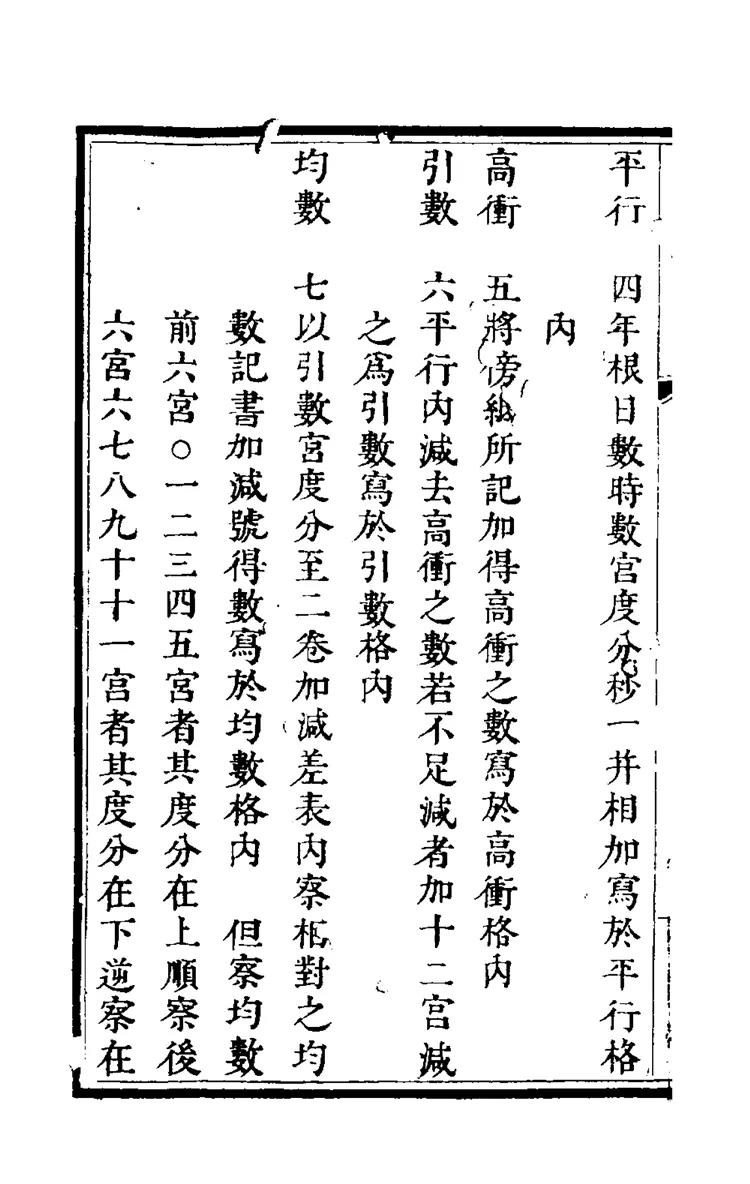 平行　四年根日數時數宮度分秒一并相加寫於平行格
內
高衝　五將傍細所記加得高衝之數寫於高衝格內
引數　六平行內減去高衝之數若不足減者加十二宮減
之爲引數寫於引數格內
均數　七以引數宮度分至二卷加減差表內察相對之均
數記書加減號得數寫於均數格內　但察均數
前六宮○一二三四五宮者其度分在上順察後
六宮六七八九十十一宮者其度分在下逆察在